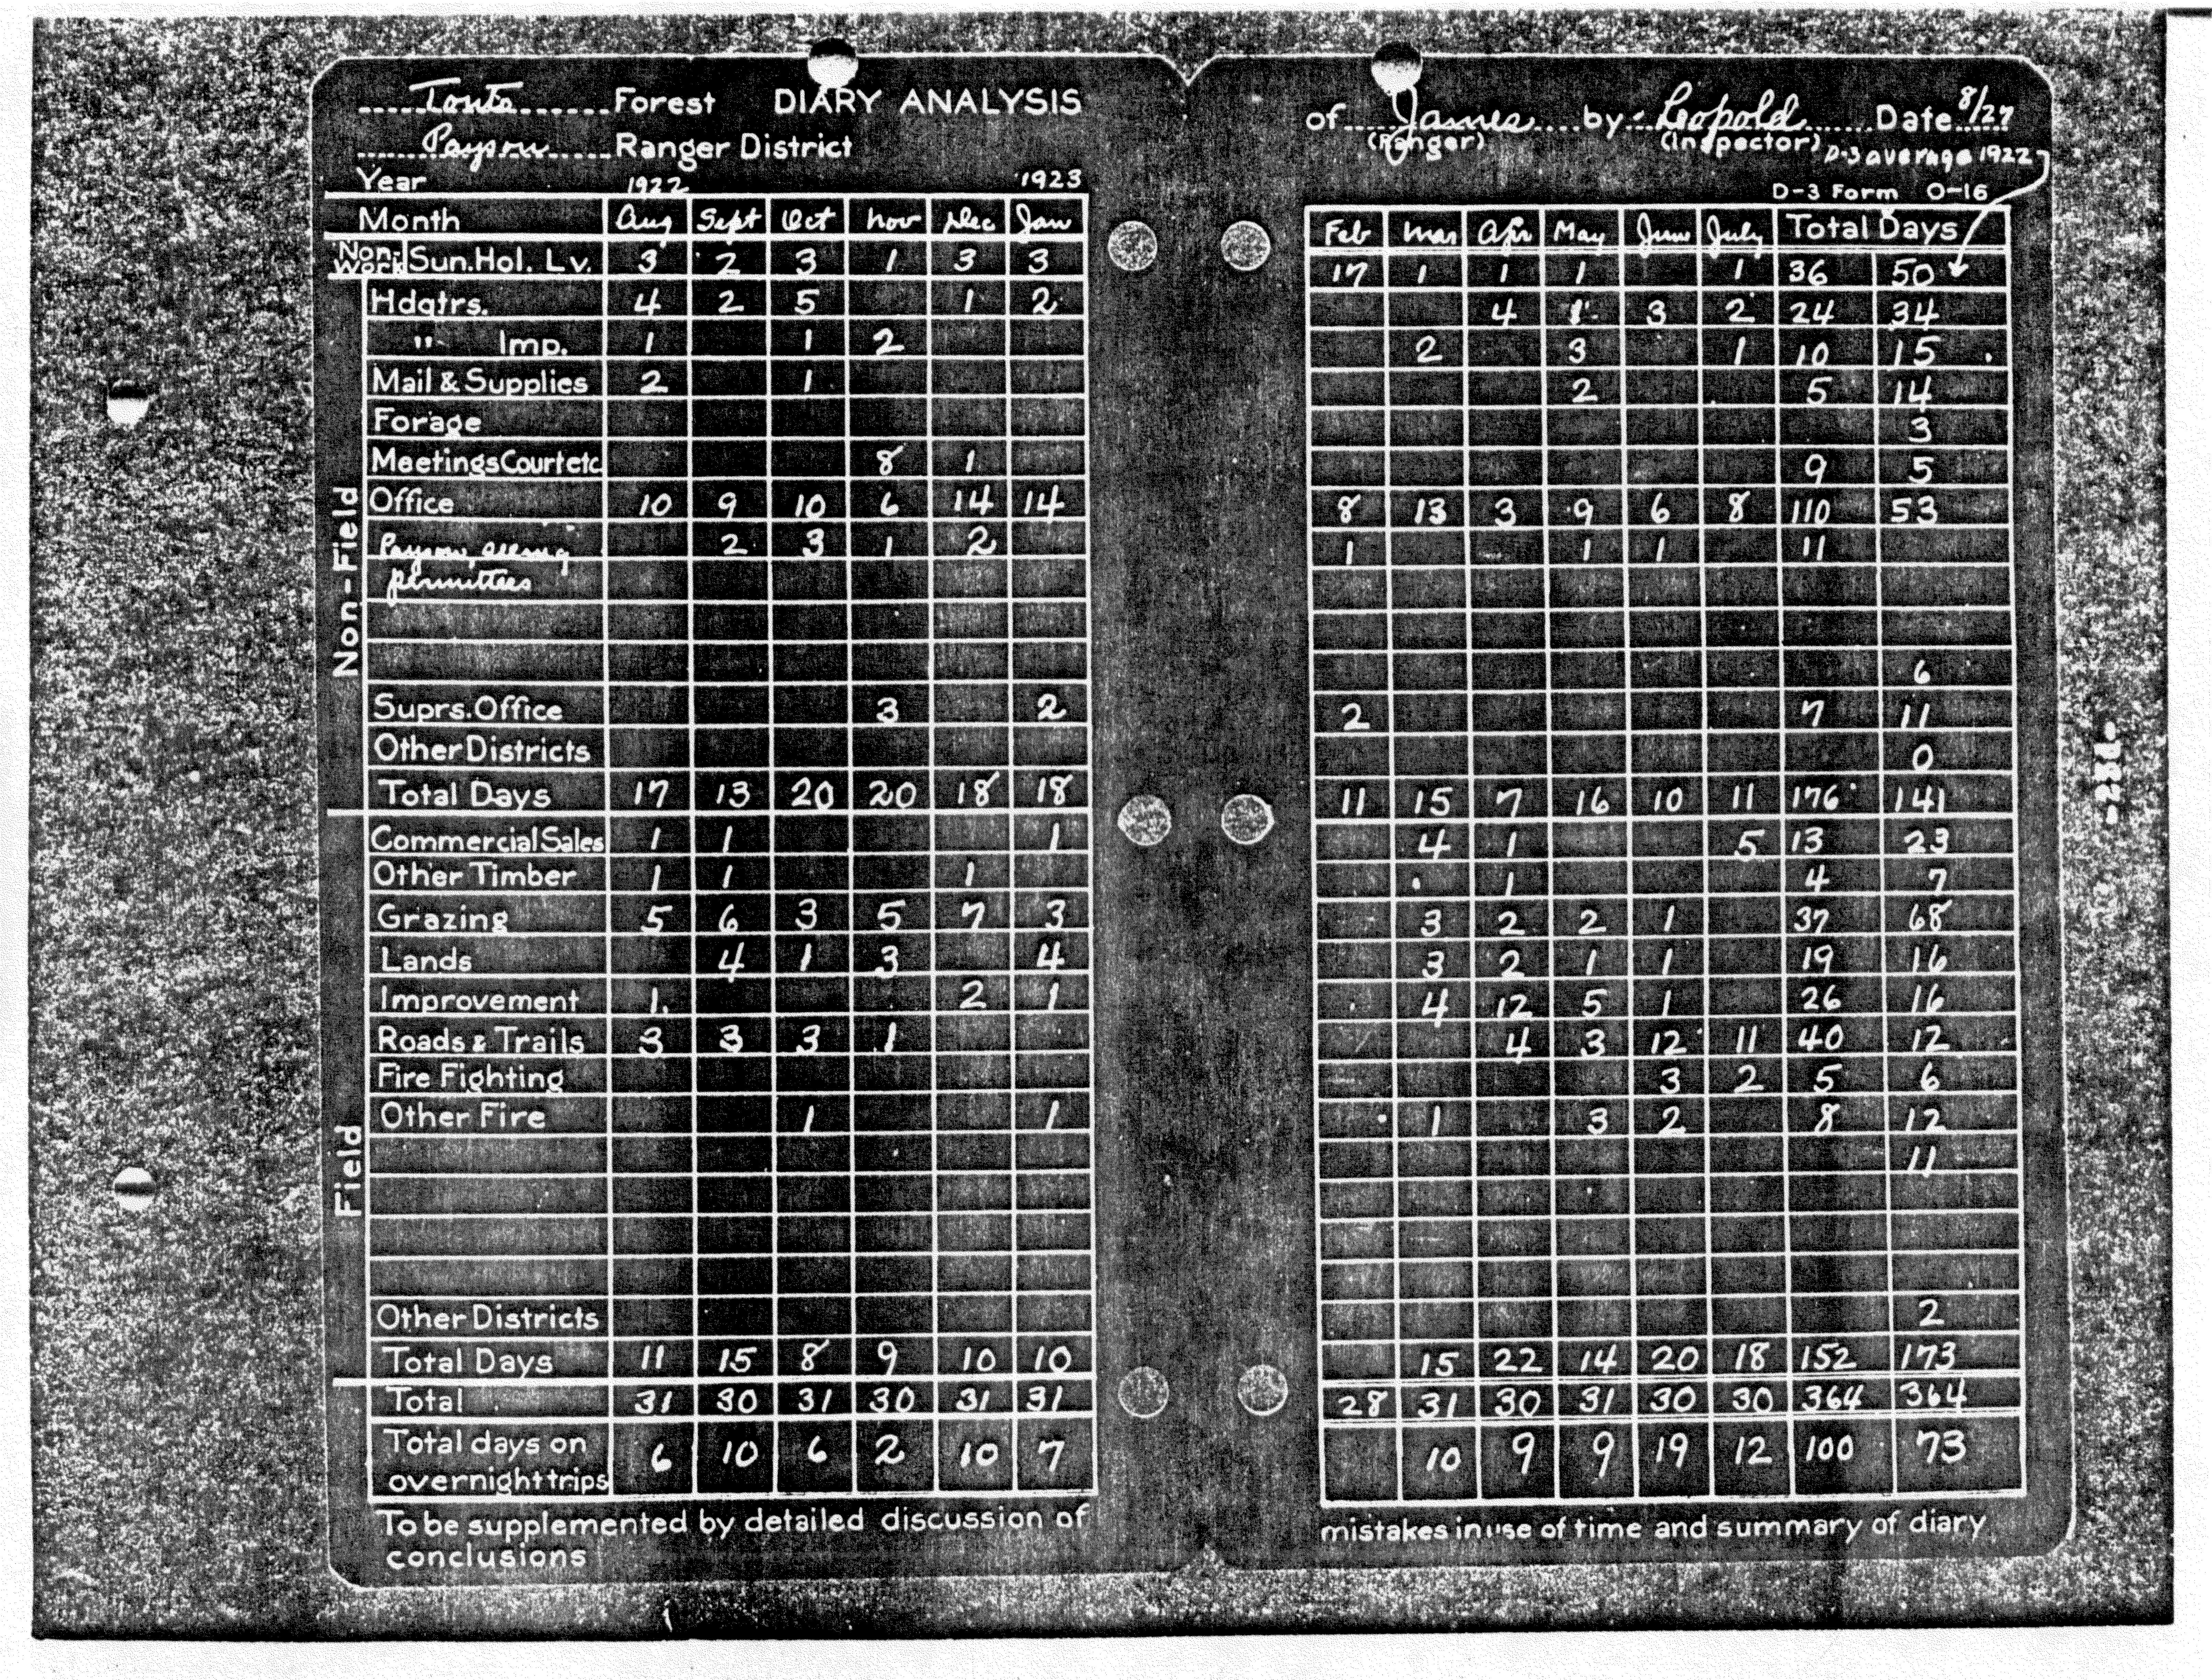 Tonto Forest DIARY ANALYSIS
Payson Ranger District
Year 1922 1923
Month Aug Sept Oct Nov Dec Jan
Non-Work Sun.Hol. Lv. 3 2 3 1 3 3
Hdqtrs. 4 2 5 1 2
" Imp. 1 1 2
Mail & Supplies 2 1
Forage
Meetings Court etc 8 1
Office 10 9 10 6 14 14
Payson, seeing 2 3 1 2
permittees
Non-Field
Suprs. Office 3 2
Other Districts
Total Days 17 13 20 20 18 18
Commercial Sales 1 1 1
Other Timber 1 1 1
Grazing 5 6 3 5 7 3
Lands 4 1 3 4
Improvement 1 2 1
Roads & Trails 3 3 3 1
Fire Fighting
Other Fire 1 1
Field
Other Districts
Total Days 11 15 8 9 10 10
Total 31 30 31 30 31 31
Total days on
overnight trips 6 10 6 2 10 7
To be supplemented by detailed discussion of
conclusions
of James by Leopold Date 8/27
(Ranger) (Inspector) D-3 average 1922
D-3 Form O-16
Feb Mar Apr May June July Total Days
17 1 1 1 1 36 50
4 1 3 2 24 34
2 3 1 10 15
2 5 14
3
9 5
8 13 3 9 6 8 110 53
1 1 1 11
6
2 7 11
0
11 15 7 16 10 11 176 141
4 1 5 13 23
1 4 7
3 2 2 1 37 68
3 2 1 1 19 16
4 12 5 1 26 16
4 3 12 11 40 12
3 2 5 6
1 3 2 8 12
11
2
15 22 14 20 18 152 173
28 31 30 31 30 30 364 364
10 9 9 19 12 100 73
mistakes in use of time and summary of diary